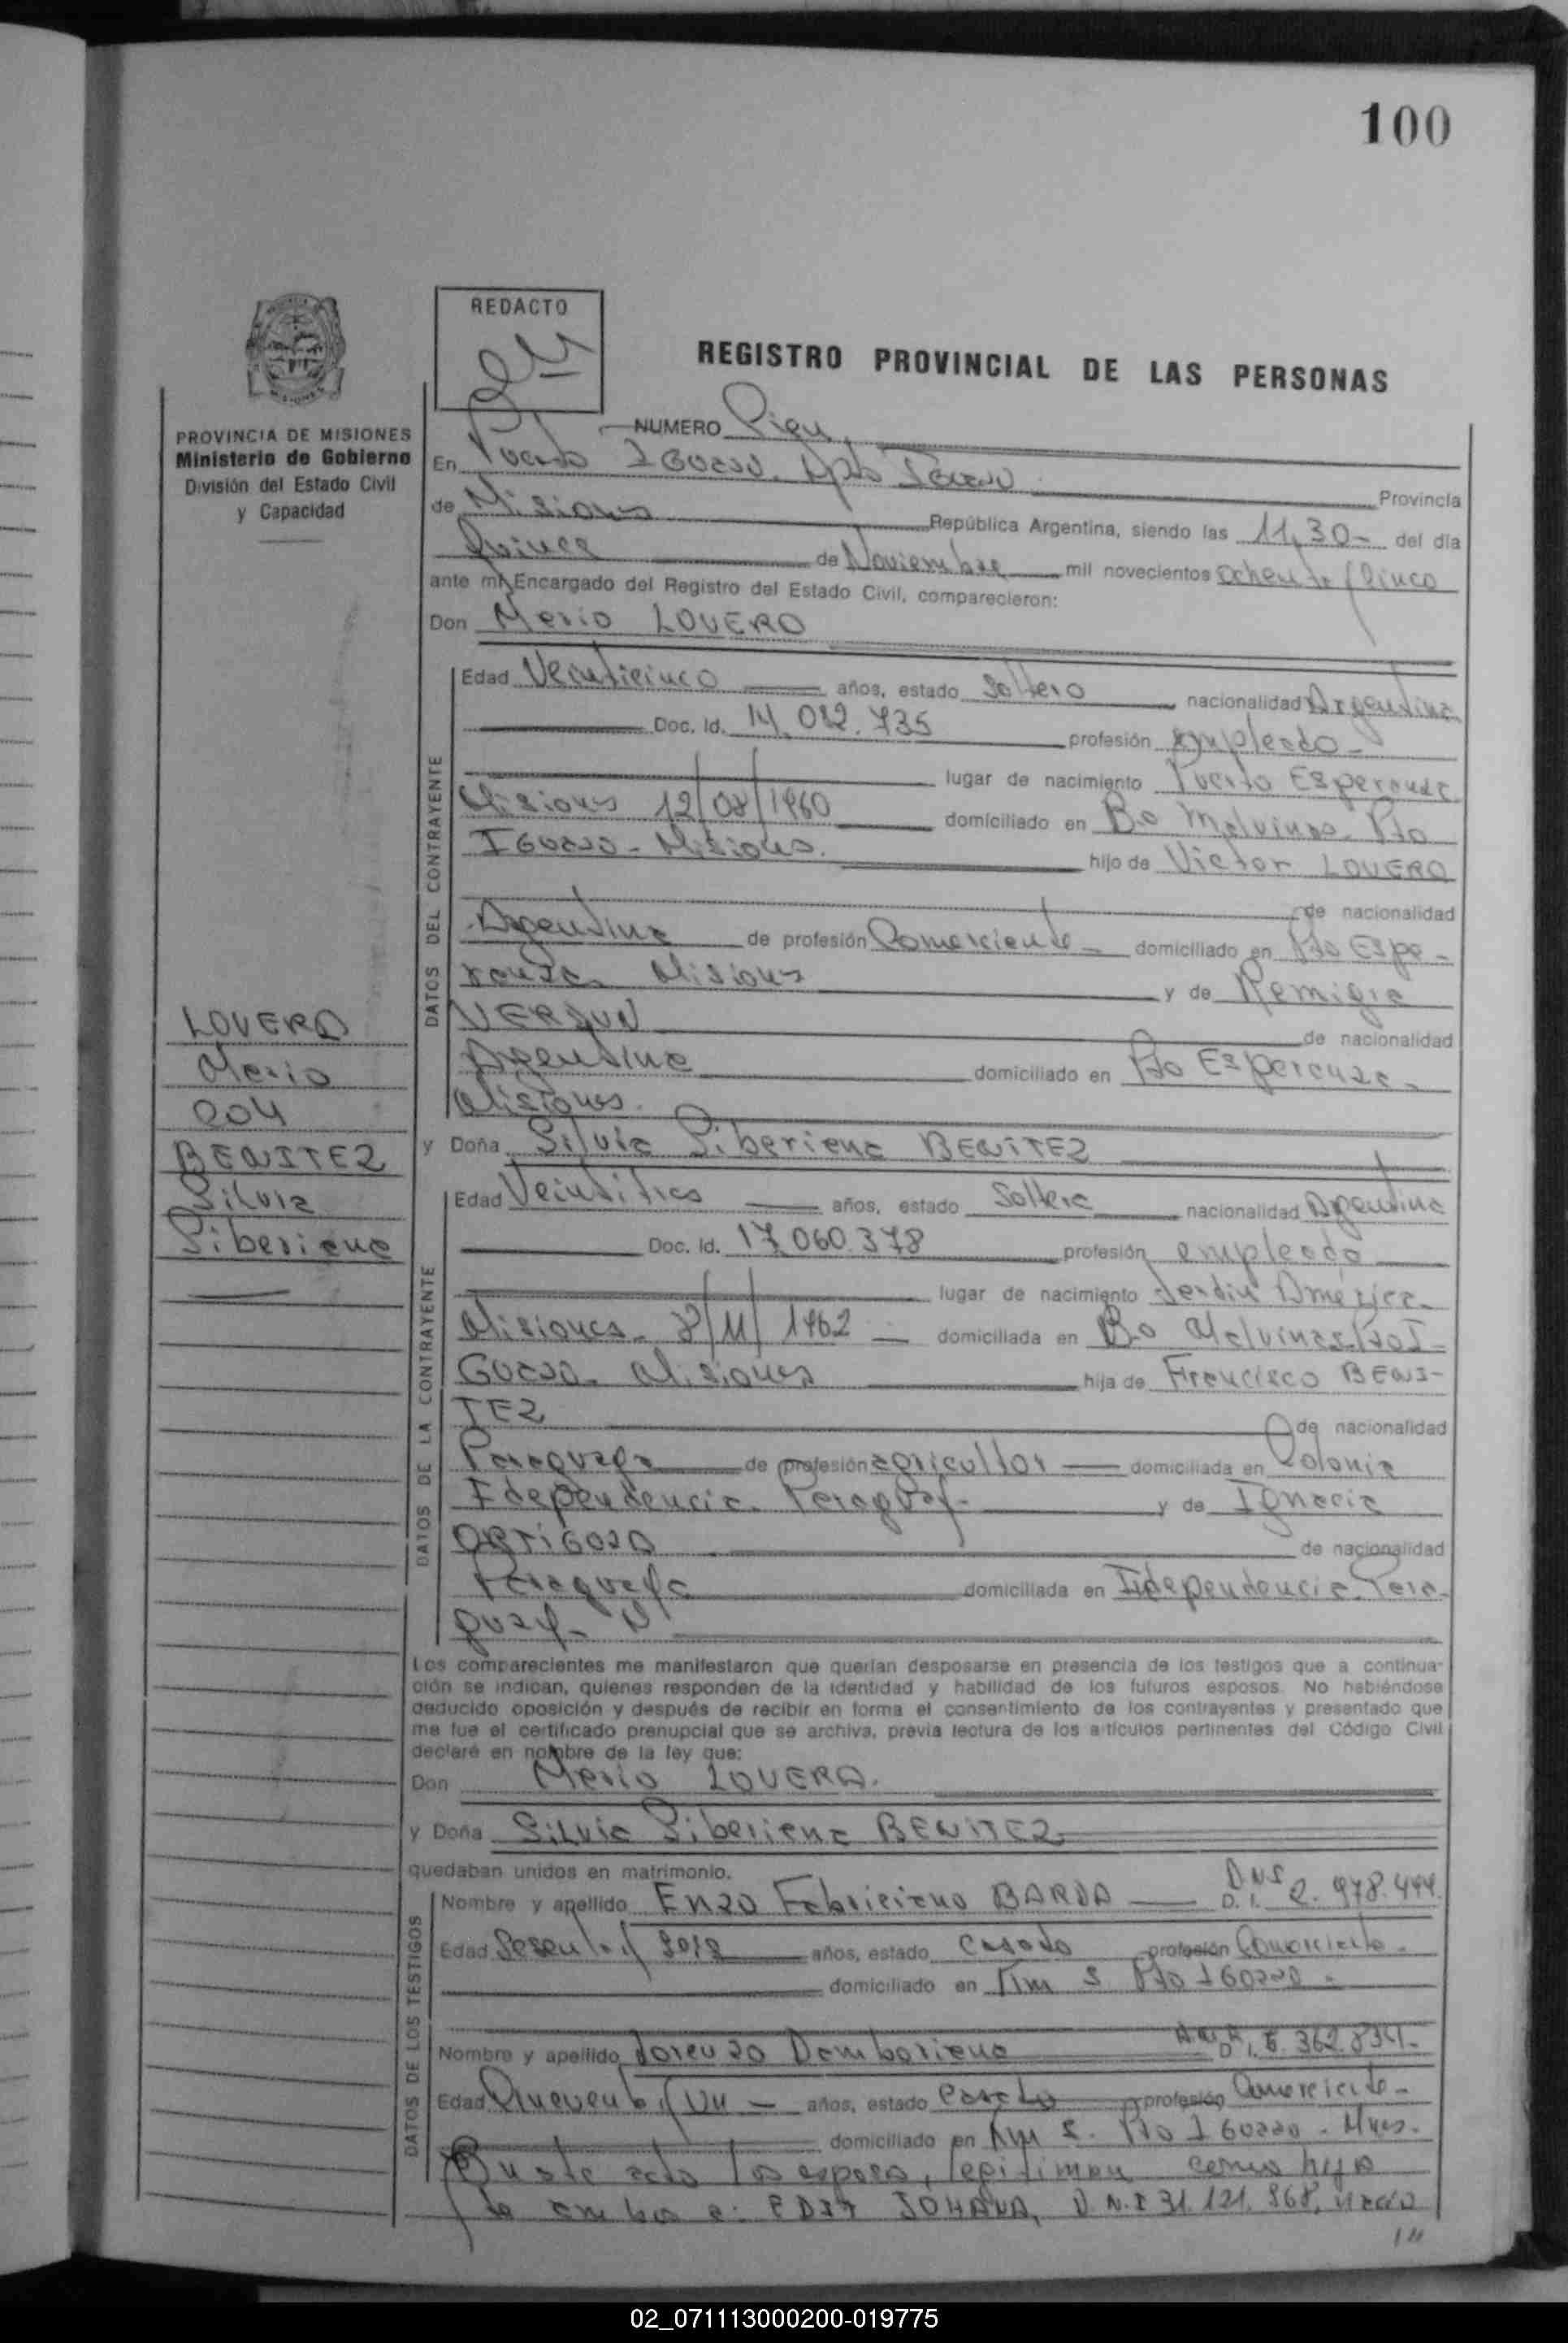 100
REDACTO
REGISTRO PROVINCIAL DE LAS PERSONAS
PROVINCIA DE MISIONES
Ministerio de Gobierno
División del Estado Civil
y Capacidad
NUMERO Cien
En Puerto IGUAZU. Dpto IGUAZU Provincia
de Misiones República Argentina, siendo las 11,30 - del día
Quince de Noviembre mil novecientos ochenta y Cinco
ante mí, Encargado del Registro del Estado Civil, comparecieron:
Don Mario LOVERA
DATOS DEL CONTRAYENTE
Edad Veinticinco años, estado Soltero nacionalidad Argentina
Doc. Id. 14.082.735 profesión empleado -
lugar de nacimiento Puerto Esperanza
Misiones 12/08/1960 domiciliado en Bo Malvinas. Pto
IGUAZU - Misiones. hijo de Victor LOVERA
de nacionalidad
Argentina de profesión Comerciante - domiciliado en Pto Espe-
ranza. Misiones y de Remigia
VERDUN de nacionalidad
Argentina domiciliado en Pto Esperanza -
Misiones.
LOVERA
Mario
con
BENITEZ
Silvia
Siberiana
y Doña Silvia Siberiana BENITEZ
DATOS DE LA CONTRAYENTE
Edad Veintitres años, estado Soltera nacionalidad Argentina
Doc. Id. 17.060.378 profesión empleada
lugar de nacimiento Jardin America -
Misiones - 8/11/1962 domiciliada en Bo Malvinas. Pto I-
GUAZU. Misiones hija de Francisco BENI-
TEZ de nacionalidad
Paraguaya de profesión agricultor domiciliada en Colonia
Idependencia. Paraguay - y de Ignacia
ORTIGOZA de nacionalidad
Paraguaya domiciliada en Idependencia. Para-
guay -
Los comparecientes me manifestaron que querían desposarse en presencia de los testigos que a continua-
ción se indican, quienes responden de la identidad y habilidad de los futuros esposos. No habiéndose
deducido oposición y después de recibir en forma el consentimiento de los contrayentes y presentado que
me fue el certificado prenupcial que se archiva, previa lectura de los artículos pertinentes del Código Civil
declaré en nombre de la ley que:
Don Mario LOVERA.
y Doña Silvia Siberiana BENITEZ
quedaban unidos en matrimonio.
DATOS DE LOS TESTIGOS
Nombre y apellido Enzo Fabriciano BARUA D.I. 2.978.444.
Edad Sesenta y seis años, estado Casado profesión Comerciante -
domiciliado en Km 5 Pto IGUAZU -
Nombre y apellido Lorenzo Damboriena D.I. 6.362.834 -
Edad Cincuenta y un - años, estado Casado profesión Comerciante -
domiciliado en Km 5. Pto IGUAZU - Mnes.
En este acto los esposos, legitiman como hija
de ambos a: EDIT JOHANA, D.N.I 31.121.868, nacio
02_071113000200-019775